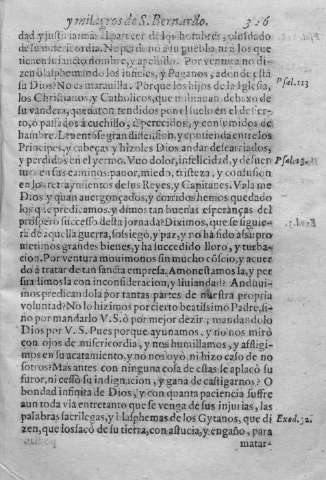 y milagros de S. Bernardo. 326
dad y justicia mas al parecer de los hombres, oluidado
de su misericordia. No perdonó a su pueblo, ni a los que
tienen su sancto nombre, y apellido. Por ventura no di-
zen o blasphemando los infieles, y Paganos, adonde está
su Dios? No es marauilla. Porque los hijos de la Iglesia,
los Christianos, y Catholicos, que militauan debaxo de
su vandera, quedaron tendidos por el suelo en el desier-
ro, o passados a cuchillo, o perecidos, y consumidos de
hambre. Leuentose gran dissension, y contienda entre los
Principes, y cabeças y hizoles Dios andar descarriados,
y perdidos en el yermo. Vuo dolor, infelicidad, y desuen
tura en sus caminos: pauor, miedo, tristeza, y confusion
en los retraymientos de sus Reyes, y Capitanes. Valame
Dios y quan auergonçados, y corridos hemos quedado
los que predicamos, y dimos tan buenas esperanças del
prospero successo desta jornada? Diximos, que se siguie-
ra de aquella guerra, sossiego, y paz, y no ha sido assi: pro
metimos grandes bienes, y ha succedido lloro, y turba-
cion. Por ventura mouimonos sin mucho cõsejo, y acuer
do à tratar de tan sancta empresa. Amonestamos la, y per
suadimos la con inconsideracion, y liuiandad? Anduui-
mos predicandola por tantas partes de nuestra propria
voluntad? No lo hizimos por cierto beatissimo Padre, si-
no por mandarlo V.S. ò por mejor dezir, mandandolo
Dios por V. S. Pues porque ayunamos, y no nos mirò
con ojos de misericordia, y nos humillamos, y affligi-
mos en su acatamiento, y no nos oyò, ni hizo caso de no
sotros? Mas antes con ninguna cosa de estas se aplacò su
furor, ni cessò su indignacion, y gana de castigarnos? O
bondad infinita de Dios, y con quanta paciencia suffre
aun toda via entretanto que se venga de sus injurias, las
palabras sacrilegas, y blasphemas de los Gytanos, que di
zen, que los sacò de su tierra, con astucia, y engaño, para
matar-
Psal. 113
Exod. 32.